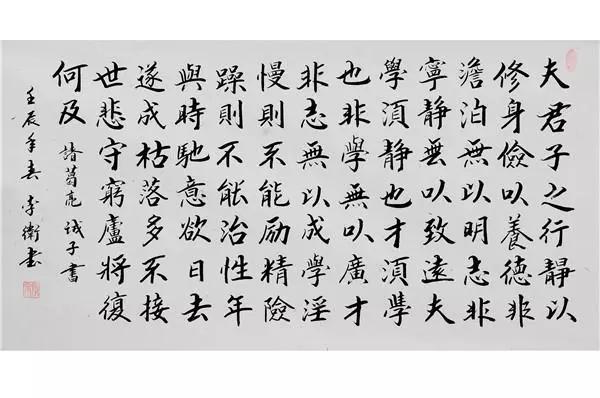 夫君子之行靜以
修身儉以養德非
澹泊無以明志非
寧靜無以致遠夫
學須靜也才須學
也非學無以廣才
非志無以成學淫
慢則不能励精險
躁則不能治性年
與時馳意欲日去
遂成枯落多不接
世悲守窮廬將復
何及 諸葛亮誡子書
壬辰年春 李衛書